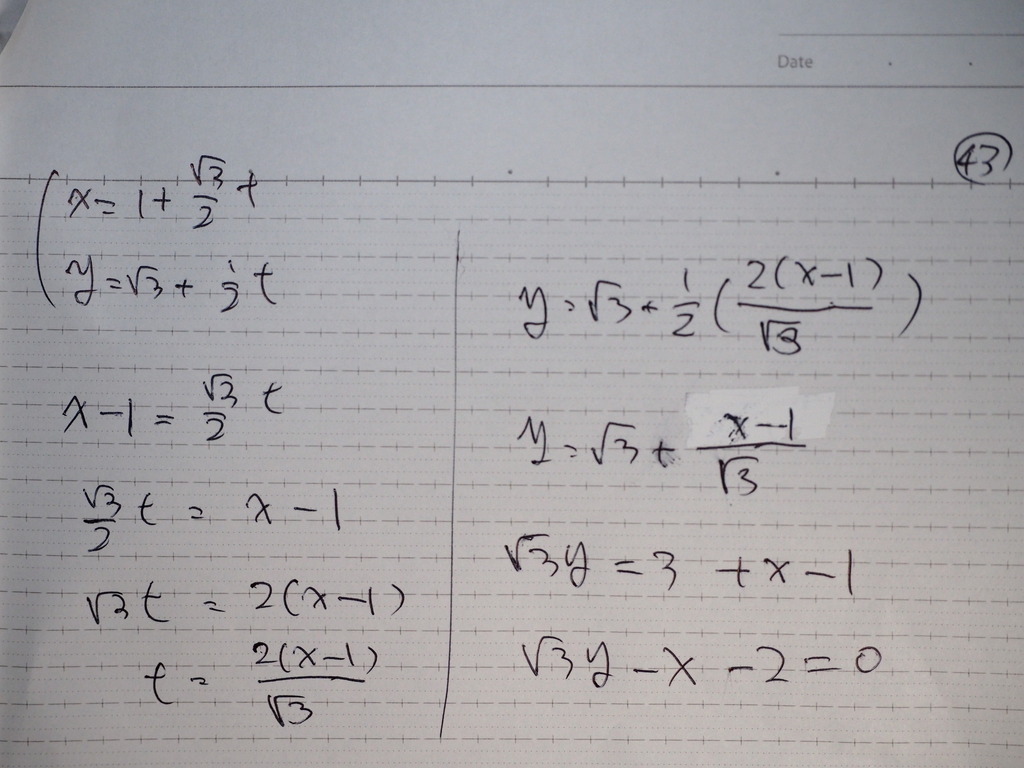 Date
43
x = 1 + √3/2 t
y = √3 + 1/2 t
x - 1 = √3/2 t
√3/2 t = x - 1
√3 t = 2(x-1)
t = 2(x-1)/√3
y = √3 + 1/2 ( 2(x-1)/√3 )
y = √3 + x-1/√3
√3y = 3 + x - 1
√3y - x - 2 = 0